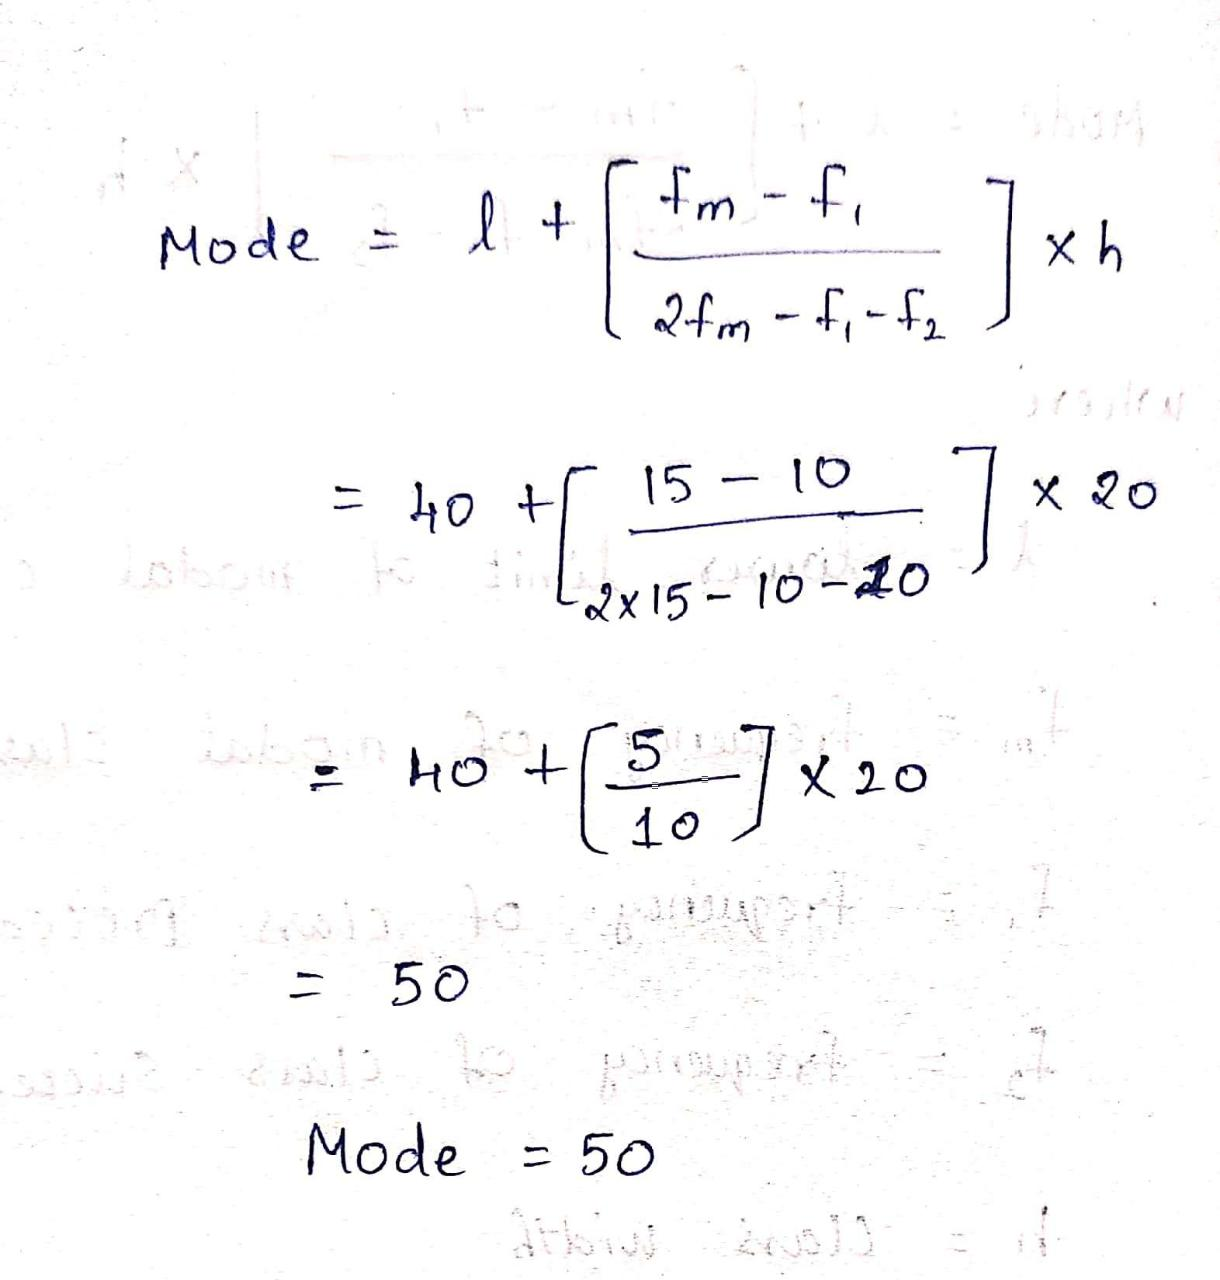 Mode = l + [ fm - f₁ / 2fm - f₁ - f₂ ] x h
= 40 + [ 15 - 10 / 2x15 - 10 - 10 ] x 20
= 40 + [ 5 / 10 ] x 20
= 50
Mode = 50